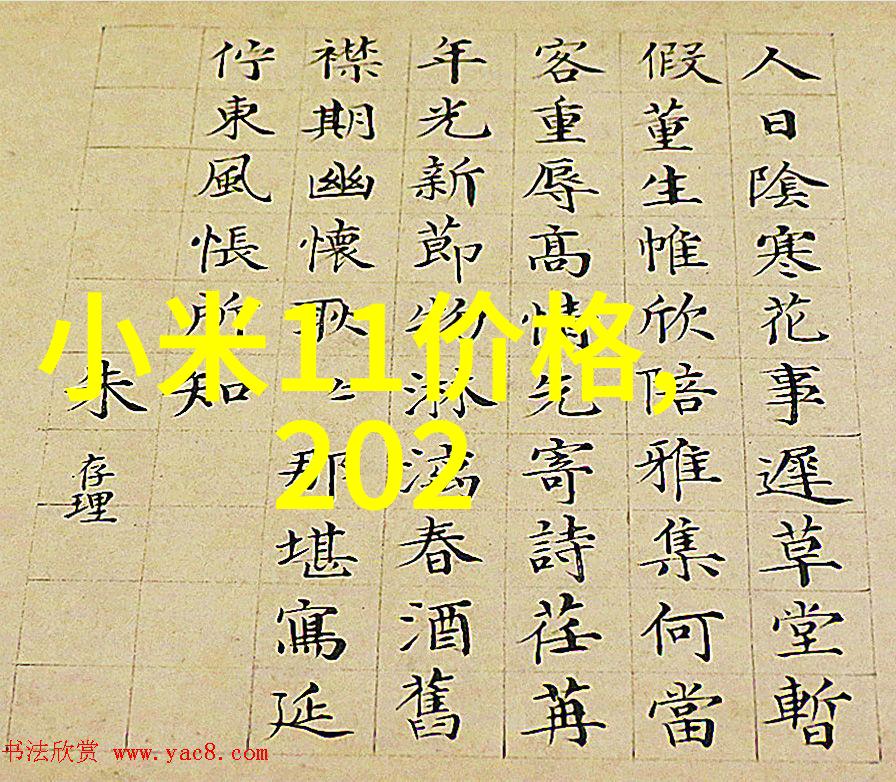 人日陰寒花事遲草堂暫
假董生帷欣陪雅集何當
客重辱高情先寄詩荏苒
年光新節物淋漓春酒舊
襟期幽懷耿〻那堪寫延
佇東風悵所知
朱存理
小米11价格,
202
书法欣赏 www.yac8.com